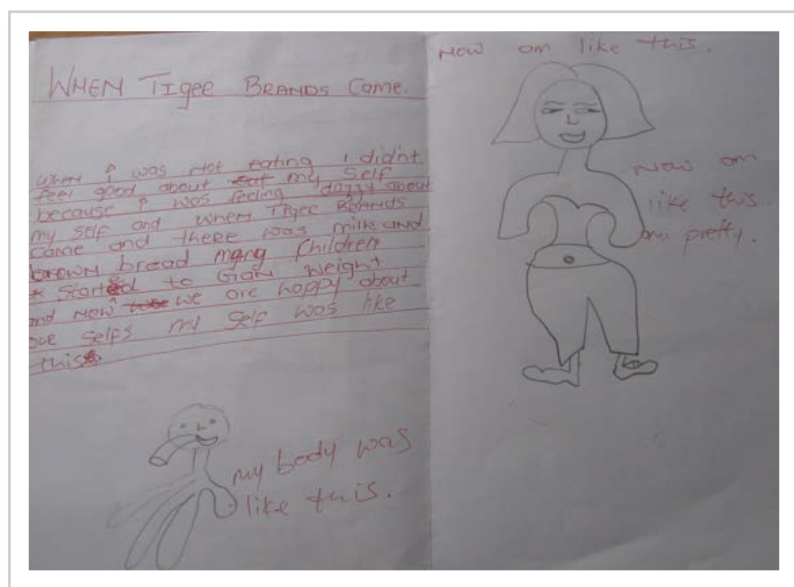 WHEN TIgee BRANDS Came.
when i was not eating i didn't
feel good about eat my self
because i was feeling dazzy about
my self and when TIgee BRANDS
came and there was milk and
brown bread many children
started to Gain weight
and now we are happy about
our selfs my self was like
this
my body was
like this.
Now am like this.
Now am
like this.
am pretty.